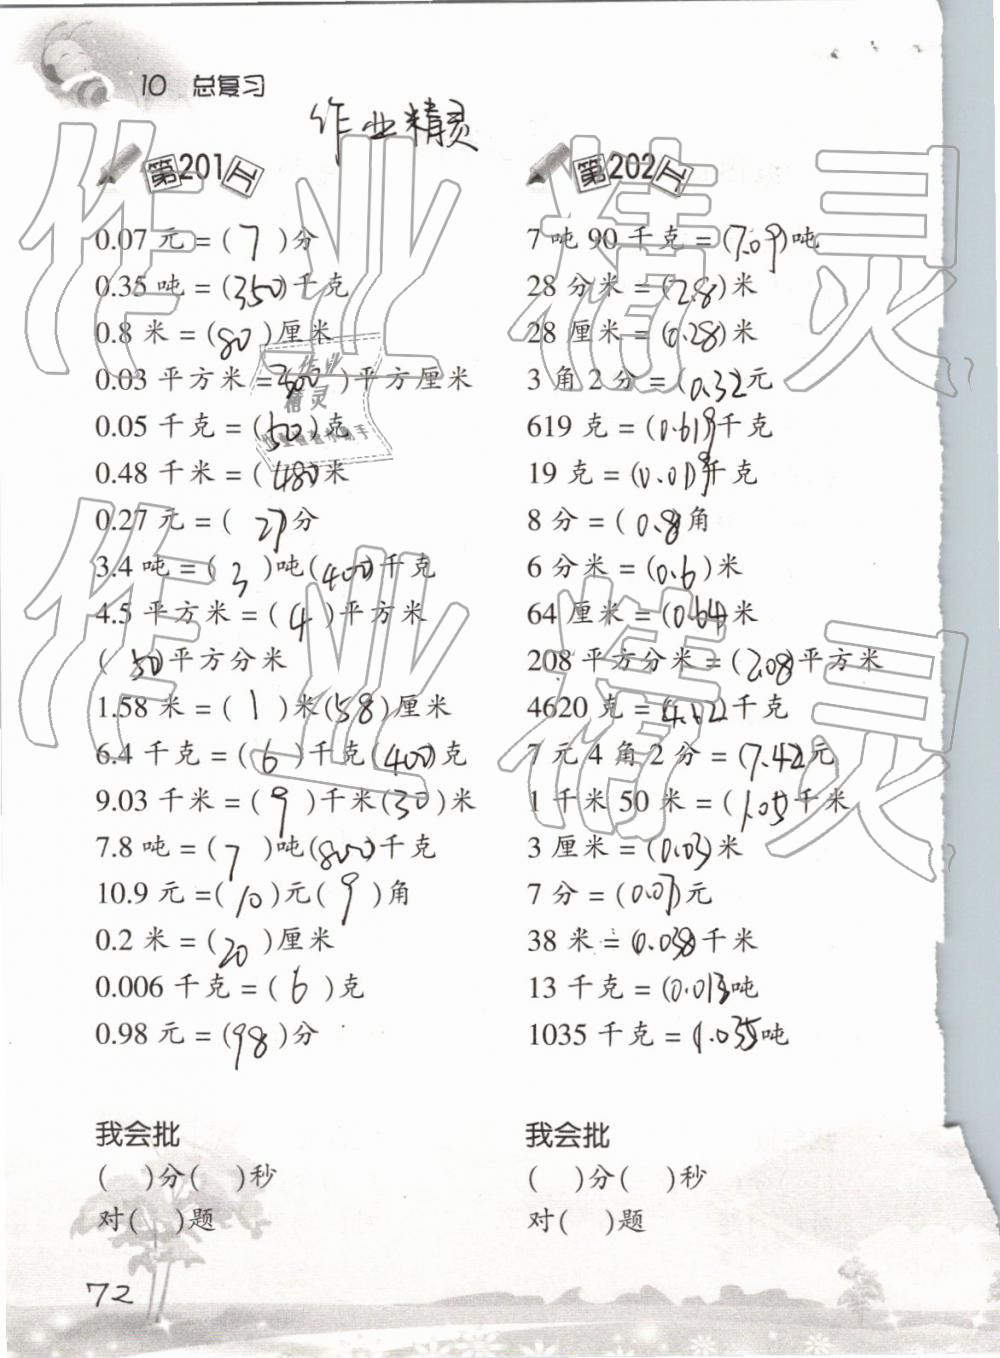 10 总复习
作业精灵
第201天
0.07元=(7)分
0.35吨=(350)千克
0.8米=(80)厘米
0.03平方米=(300)平方厘米
0.05千克=(50)克
0.48千米=(480)米
0.27元=(27)分
3.4吨=(3)吨(400)千克
4.5平方米=(4)平方米
(50)平方分米
1.58米=(1)米(58)厘米
6.4千克=(6)千克(400)克
9.03千米=(9)千米(30)米
7.8吨=(7)吨(800)千克
10.9元=(10)元(9)角
0.2米=(20)厘米
0.006千克=(6)克
0.98元=(98)分
我会批
( )分( )秒
对( )题
第202天
7吨90千克=(7.09)吨
28分米=(2.8)米
28厘米=(0.28)米
3角2分=(0.32)元
619克=(0.619)千克
19克=(0.019)千克
8分=(0.8)角
6分米=(0.6)米
64厘米=(0.64)米
208平方分米=(2.08)平方米
4620克=(4.62)千克
7元4角2分=(7.42)元
1千米50米=(1.05)千米
3厘米=(0.03)米
7分=(0.07)元
38米=(0.038)千米
13千克=(0.013)吨
1035千克=(1.035)吨
我会批
( )分( )秒
对( )题
72
作业精灵
作业精灵
作业
精灵